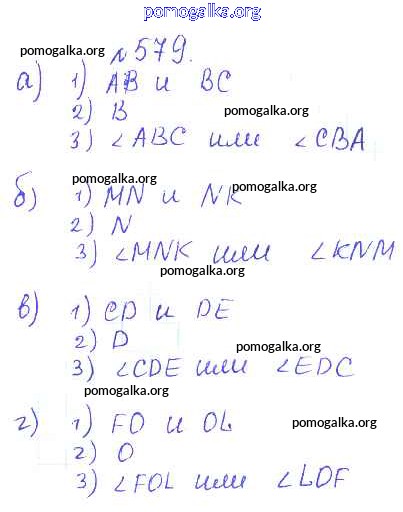 pomogalka.org
pomogalka.org
№579.
а) 1) AB и BC
2) B
pomogalka.org
3) ∠ABC или ∠CBA
pomogalka.org
pomogalka.org
б) 1) MN и NK
2) N
3) ∠MNK или ∠KNM
pomogalka.org
в) 1) CD и DE
2) D
pomogalka.org
3) ∠CDE или ∠EDC
pomogalka.org
г) 1) FO и OL
pomogalka.org
2) O
3) ∠FOL или ∠LOF